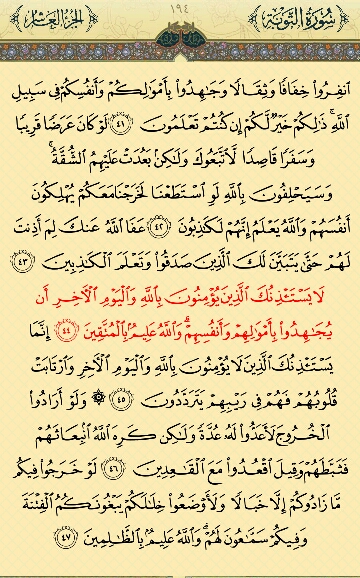 سُورَةُ التَّوْبَةِ ١٩٤ الجُزْءُ العَاشِرُ
ٱنفِرُوا۟ خِفَافًا وَثِقَالًا وَجَٰهِدُوا۟ بِأَمْوَٰلِكُمْ وَأَنفُسِكُمْ فِى سَبِيلِ
ٱللَّهِ ۚ ذَٰلِكُمْ خَيْرٌ لَّكُمْ إِن كُنتُمْ تَعْلَمُونَ ٤١ لَوْ كَانَ عَرَضًا قَرِيبًا
وَسَفَرًا قَاصِدًا لَّٱتَّبَعُوكَ وَلَٰكِنۢ بَعُدَتْ عَلَيْهِمُ ٱلشُّقَّةُ ۚ
وَسَيَحْلِفُونَ بِٱللَّهِ لَوِ ٱسْتَطَعْنَا لَخَرَجْنَا مَعَكُمْ يُهْلِكُونَ
أَنفُسَهُمْ وَٱللَّهُ يَعْلَمُ إِنَّهُمْ لَكَٰذِبُونَ ٤٢ عَفَا ٱللَّهُ عَنكَ لِمَ أَذِنتَ
لَهُمْ حَتَّىٰ يَتَبَيَّنَ لَكَ ٱلَّذِينَ صَدَقُوا۟ وَتَعْلَمَ ٱلْكَٰذِبِينَ ٤٣
لَا يَسْتَـْٔذِنُكَ ٱلَّذِينَ يُؤْمِنُونَ بِٱللَّهِ وَٱلْيَوْمِ ٱلْـَٔاخِرِ أَن
يُجَٰهِدُوا۟ بِأَمْوَٰلِهِمْ وَأَنفُسِهِمْ ۗ وَٱللَّهُ عَلِيمٌۢ بِٱلْمُتَّقِينَ ٤٤ إِنَّمَا
يَسْتَـْٔذِنُكَ ٱلَّذِينَ لَا يُؤْمِنُونَ بِٱللَّهِ وَٱلْيَوْمِ ٱلْـَٔاخِرِ وَٱرْتَابَتْ
قُلُوبُهُمْ فَهُمْ فِى رَيْبِهِمْ يَتَرَدَّدُونَ ٤٥ ۞ وَلَوْ أَرَادُوا۟
ٱلْخُرُوجَ لَأَعَدُّوا۟ لَهُۥ عُدَّةً وَلَٰكِن كَرِهَ ٱللَّهُ ٱنۢبِعَاثَهُمْ
فَثَبَّطَهُمْ وَقِيلَ ٱقْعُدُوا۟ مَعَ ٱلْقَٰعِدِينَ ٤٦ لَوْ خَرَجُوا۟ فِيكُم
مَّا زَادُوكُمْ إِلَّا خَبَالًا وَلَأَوْضَعُوا۟ خِلَٰلَكُمْ يَبْغُونَكُمُ ٱلْفِتْنَةَ
وَفِيكُمْ سَمَّٰعُونَ لَهُمْ ۗ وَٱللَّهُ عَلِيمٌۢ بِٱلظَّٰلِمِينَ ٤٧